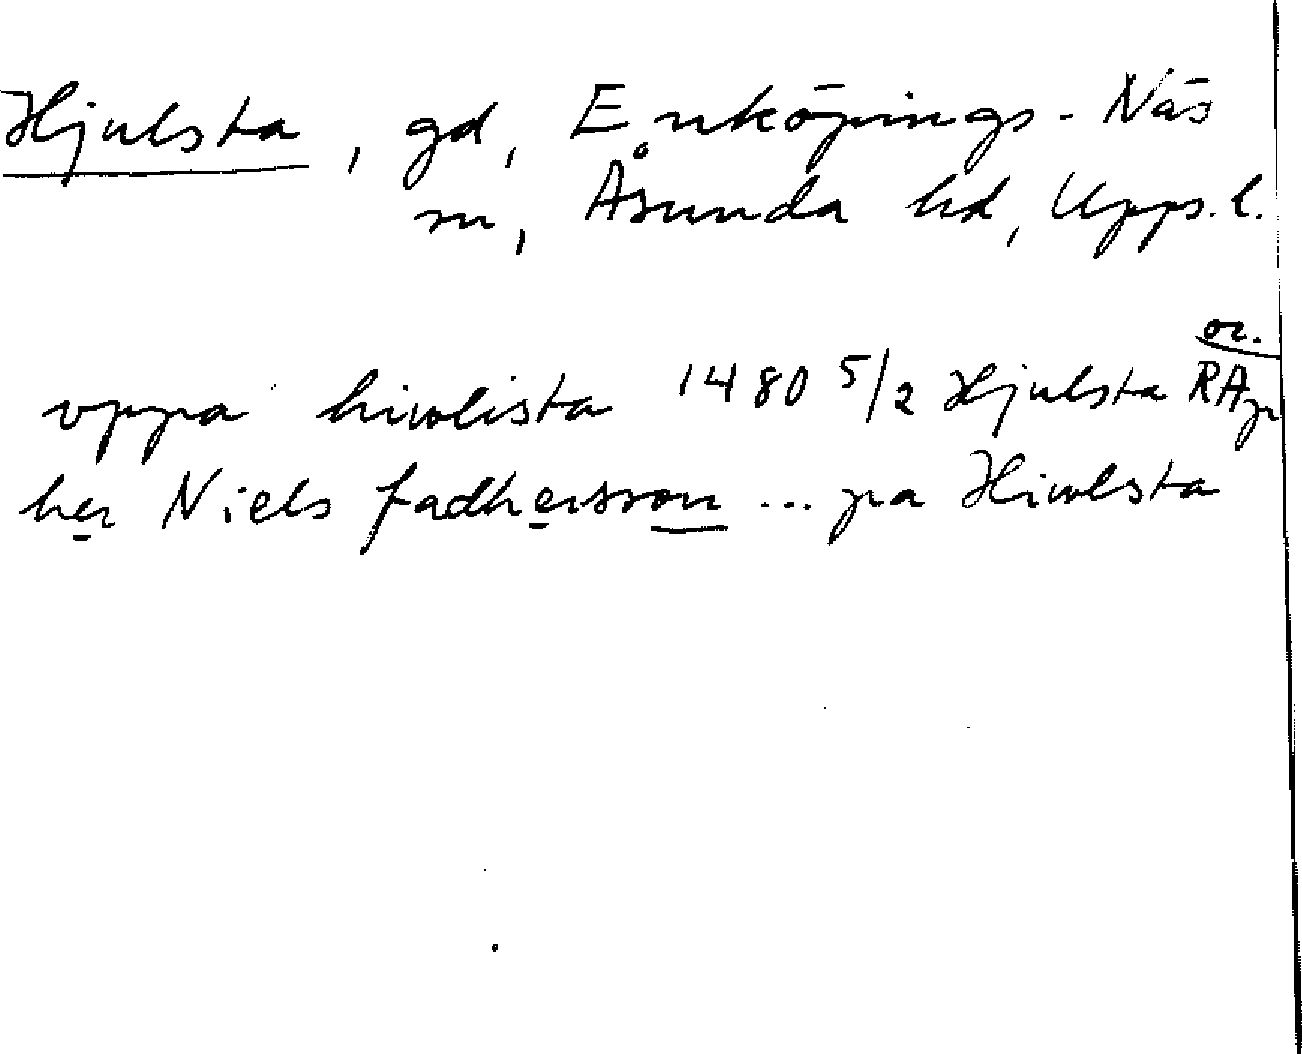 Hjulsta, gd, Enköpings-Näs
sn, Åsunda hd, Upps. l.
or.
vppa hiwlista 1480 5/2 Hjulsta RAp
her Niels fadhersson ... pa Hiwlsta